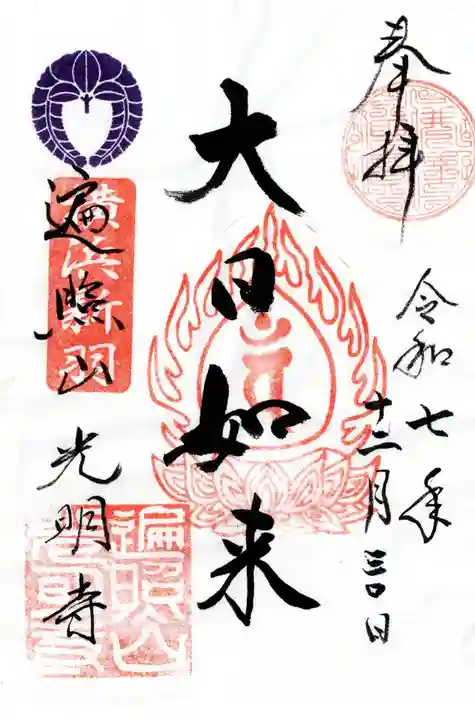 奉拝
令和七年
十二月三〇日
大日如来
遍照山
光明寺
横浜新羽
遍照山
光明寺